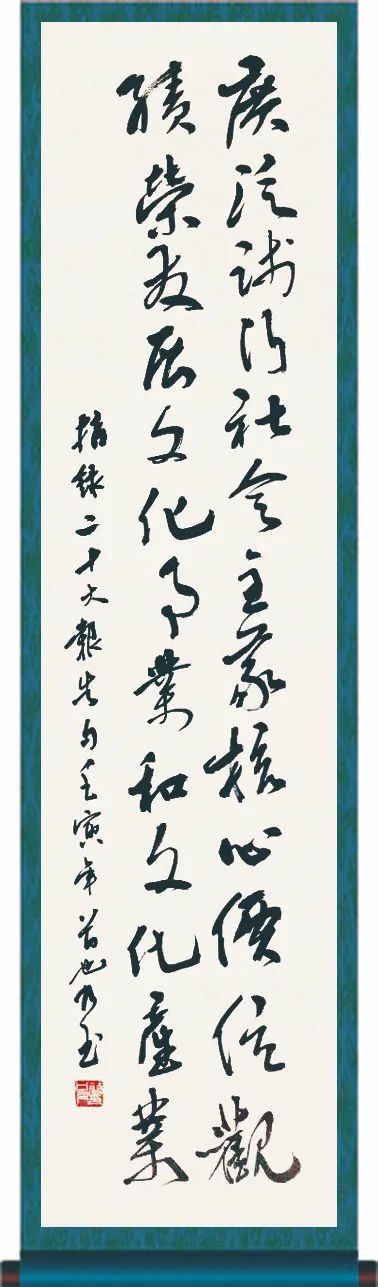 廣泛踐行社会主義核心價值觀
榮发展文化事業和文化產業
摘錄二十大報告句壬寅年